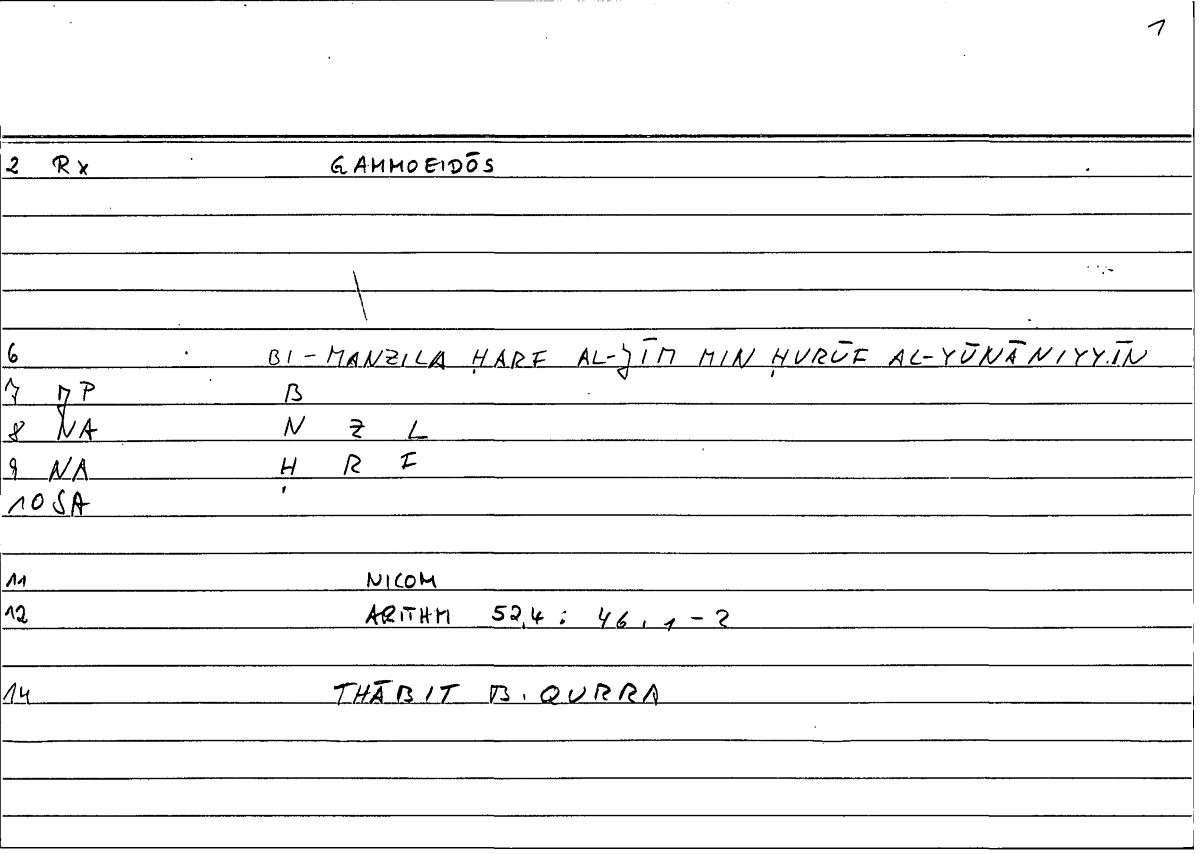 1
2 Rx GAMMOEIDŌS
6 BI-MANZILA ḤARF AL-ǦĪM MIN ḤURŪF AL-YŪNĀNIYYĪN
7 MP B
8 NA N Z L
9 NA Ḥ R F
10 SA
11 NICOM
12 ARITHM 52,4 : 46, 1-2
14 THĀBIT B. QURRA